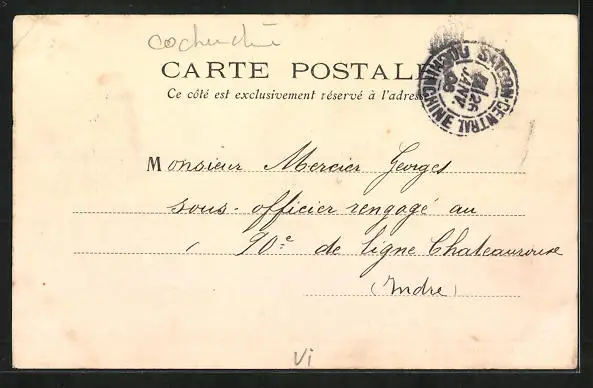 cochinchine
CARTE POSTALE
Ce côté est exclusivement réservé à l'adresse
SAIGON-CENTRAL COCHINCHINE
26
JANV
Monsieur Mercier Georges
sous-officier rengagé au
90e de ligne Chateauroux
(Indre)
Vi